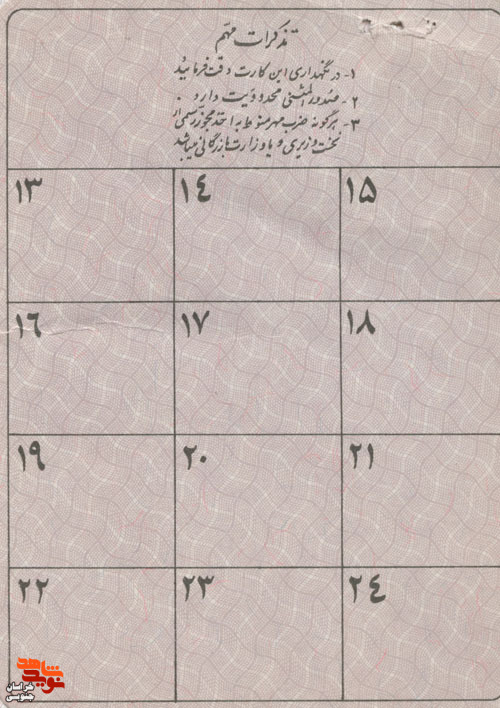 تذکرات مهم
۱- در نگهداری این کارت دقت فرمائید
۲- صدور المثنی محدودیت دارد .
۳- هرگونه ضرب مهر منوط به اخذ مجوز رسمی از
نخست وزیری و یا وزارت بازرگانی میباشد
۱۳ ۱٤ ۱۵
۱٦ ۱۷ ۱۸
۱۹ ۲۰ ۲۱
۲۲ ۲۳ ۲٤
نوید شاهد
خراسان
جنوبی